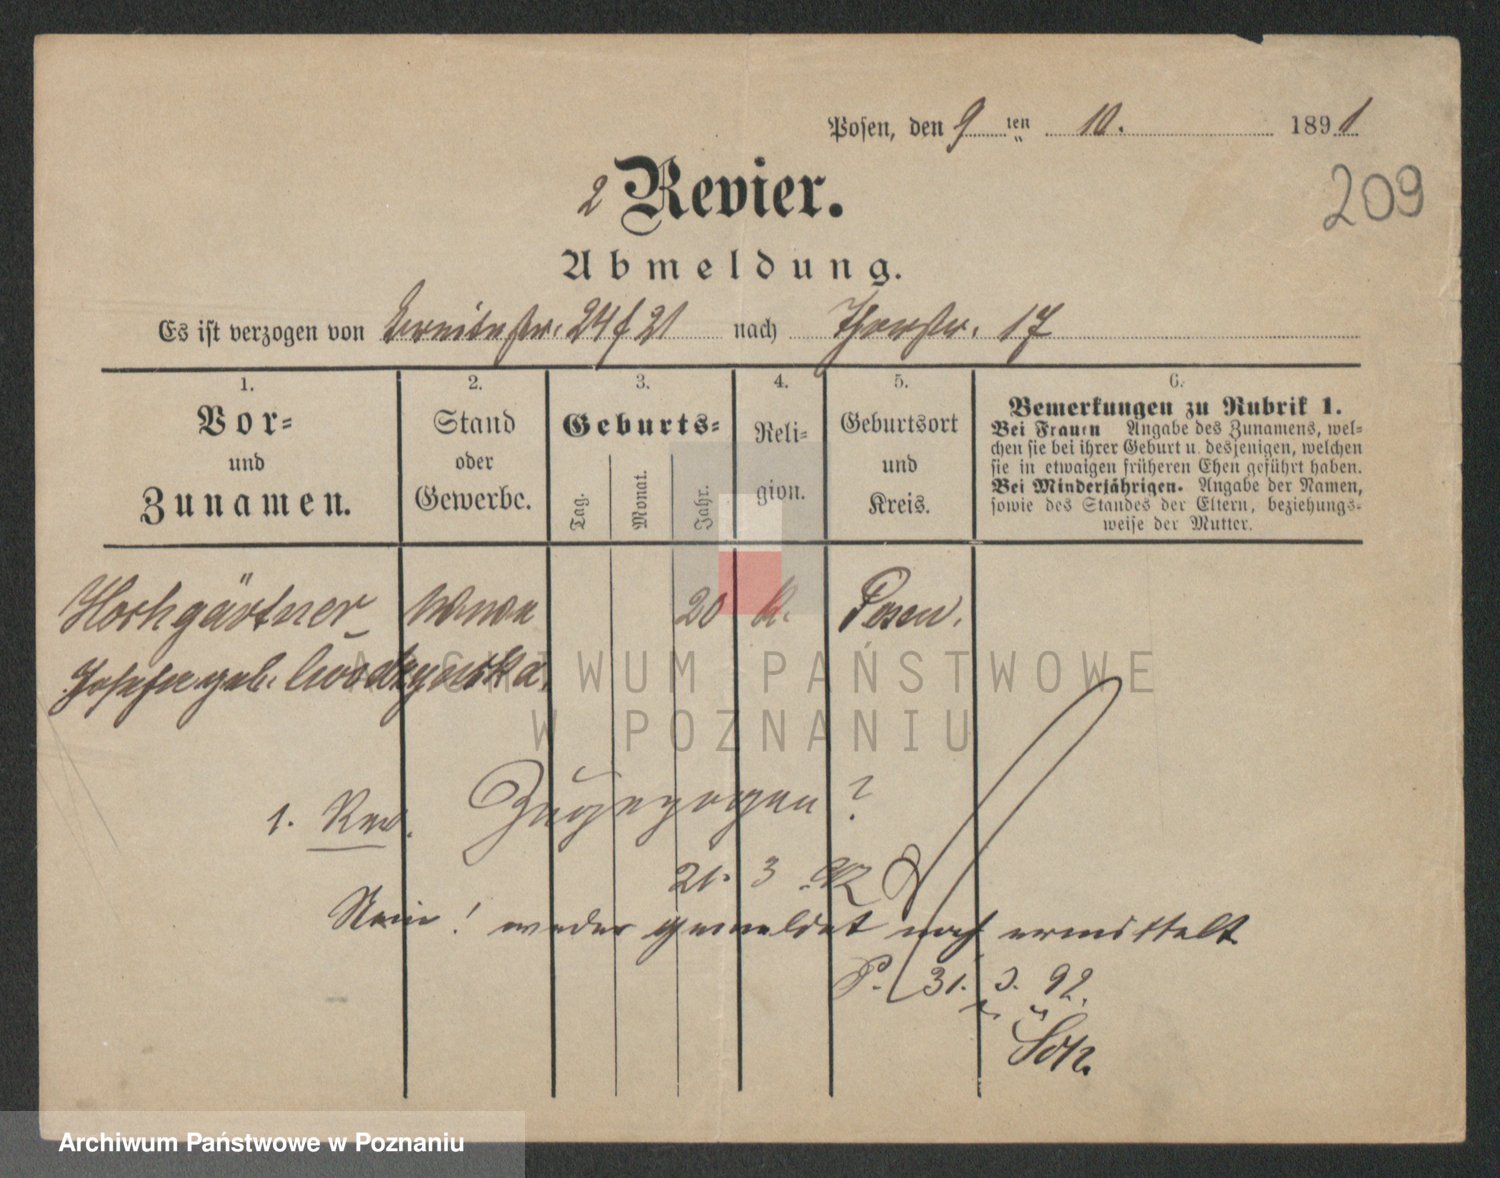 Posen, den 9 ten 10. 1891
209
2 Revier.
Abmeldung.
Es ist verzogen von Breitestr. 24/21 nach Thorstr. 17
1.
Vor-
und
Zunamen.
2.
Stand
oder
Gewerbe.
3.
Geburts-
Tag.
Monat.
Jahr.
4.
Reli-
gion.
5.
Geburtsort
und
Kreis.
6.
Bemerkungen zu Rubrik 1.
Bei Frauen Angabe des Zunamens, wel-
chen sie bei ihrer Geburt u. desjenigen, welchen
sie in etwaigen früheren Ehen geführt haben.
Bei Minderjährigen. Angabe der Namen,
sowie des Standes der Eltern, beziehungs-
weise der Mutter.
Hochgärtner Wwe 20 k. Posen.
geb.
1. Rev. Zugezogen?
21. 3. 92
Nein! weder gemeldet noch ermittelt
P. 31. 3. 92.
ARCHIWUM PAŃSTWOWE
W POZNANIU
Archiwum Państwowe w Poznaniu